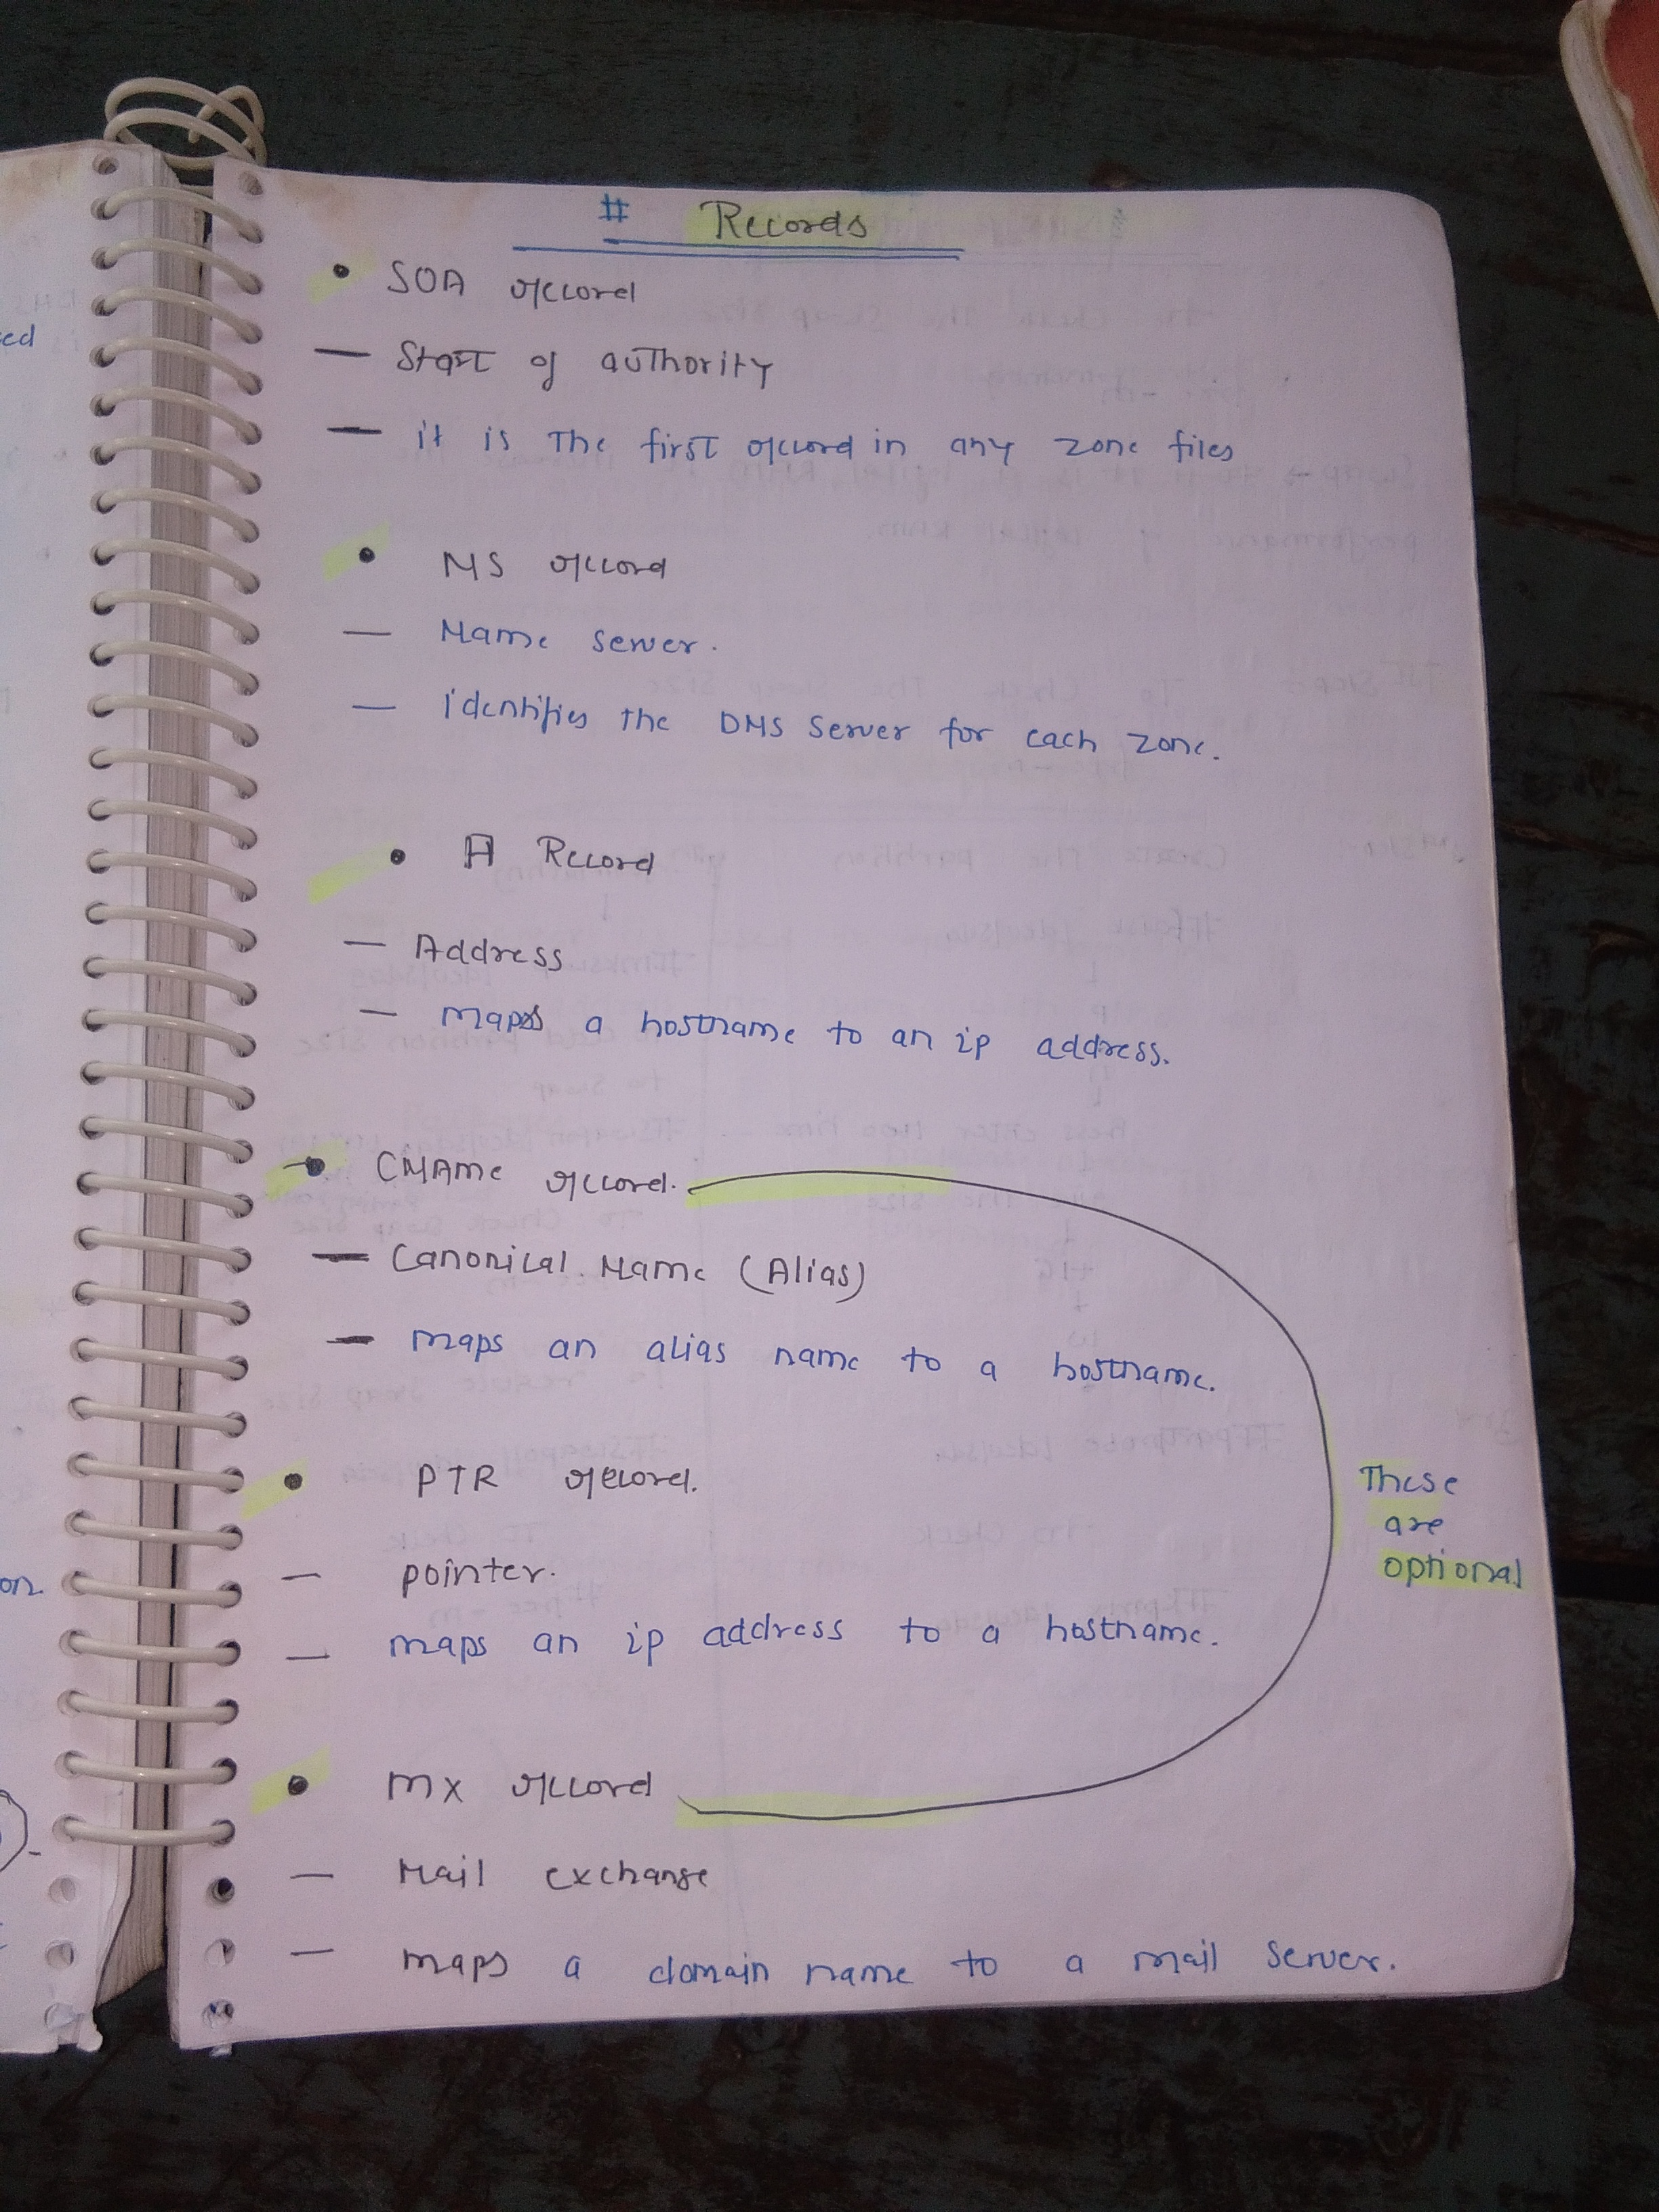 # Records
• SOA record
— Start of authority
— it is the first record in any zone files
• NS record
— Name server.
— Identifies the DNS server for each zone.
• A Record
— Address
— maps a hostname to an ip address.
• CNAME record.
— Canonical Name (Alias)
— maps an alias name to a hostname.
• PTR record.
These
are
optional
— pointer.
— maps an ip address to a hostname.
• MX record
— Mail exchange
— maps a domain name to a mail server.